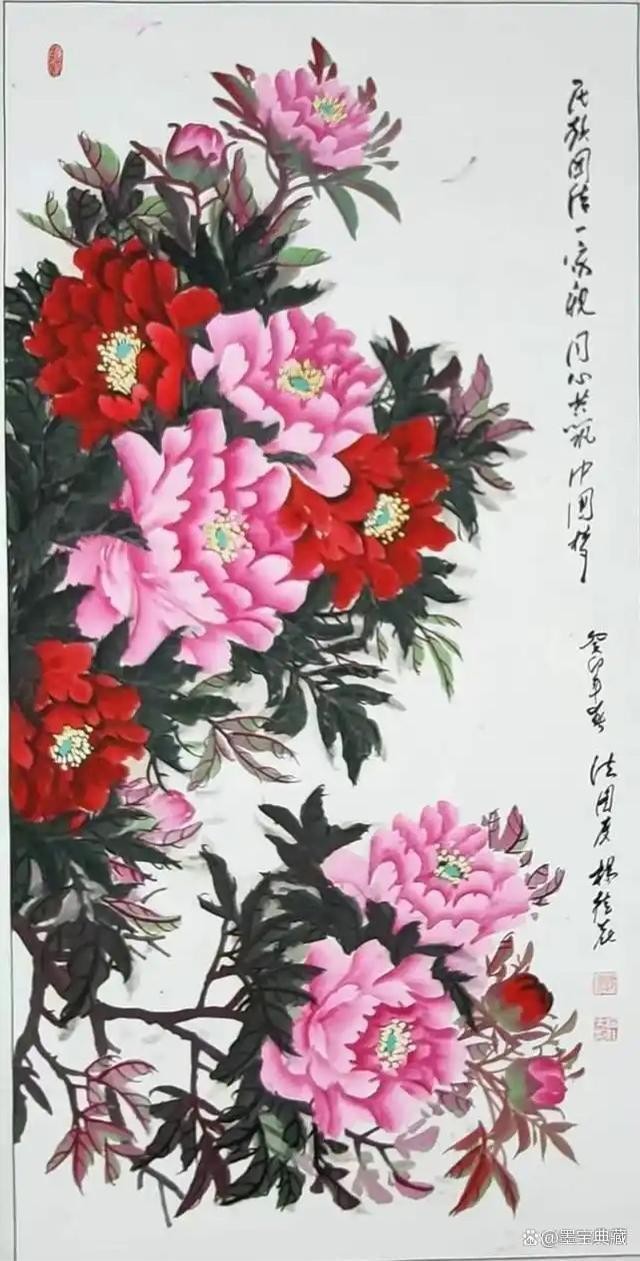 民族团结一家親同心共筑中国梦
癸卯年春 法国庆 杨
@墨宝典藏